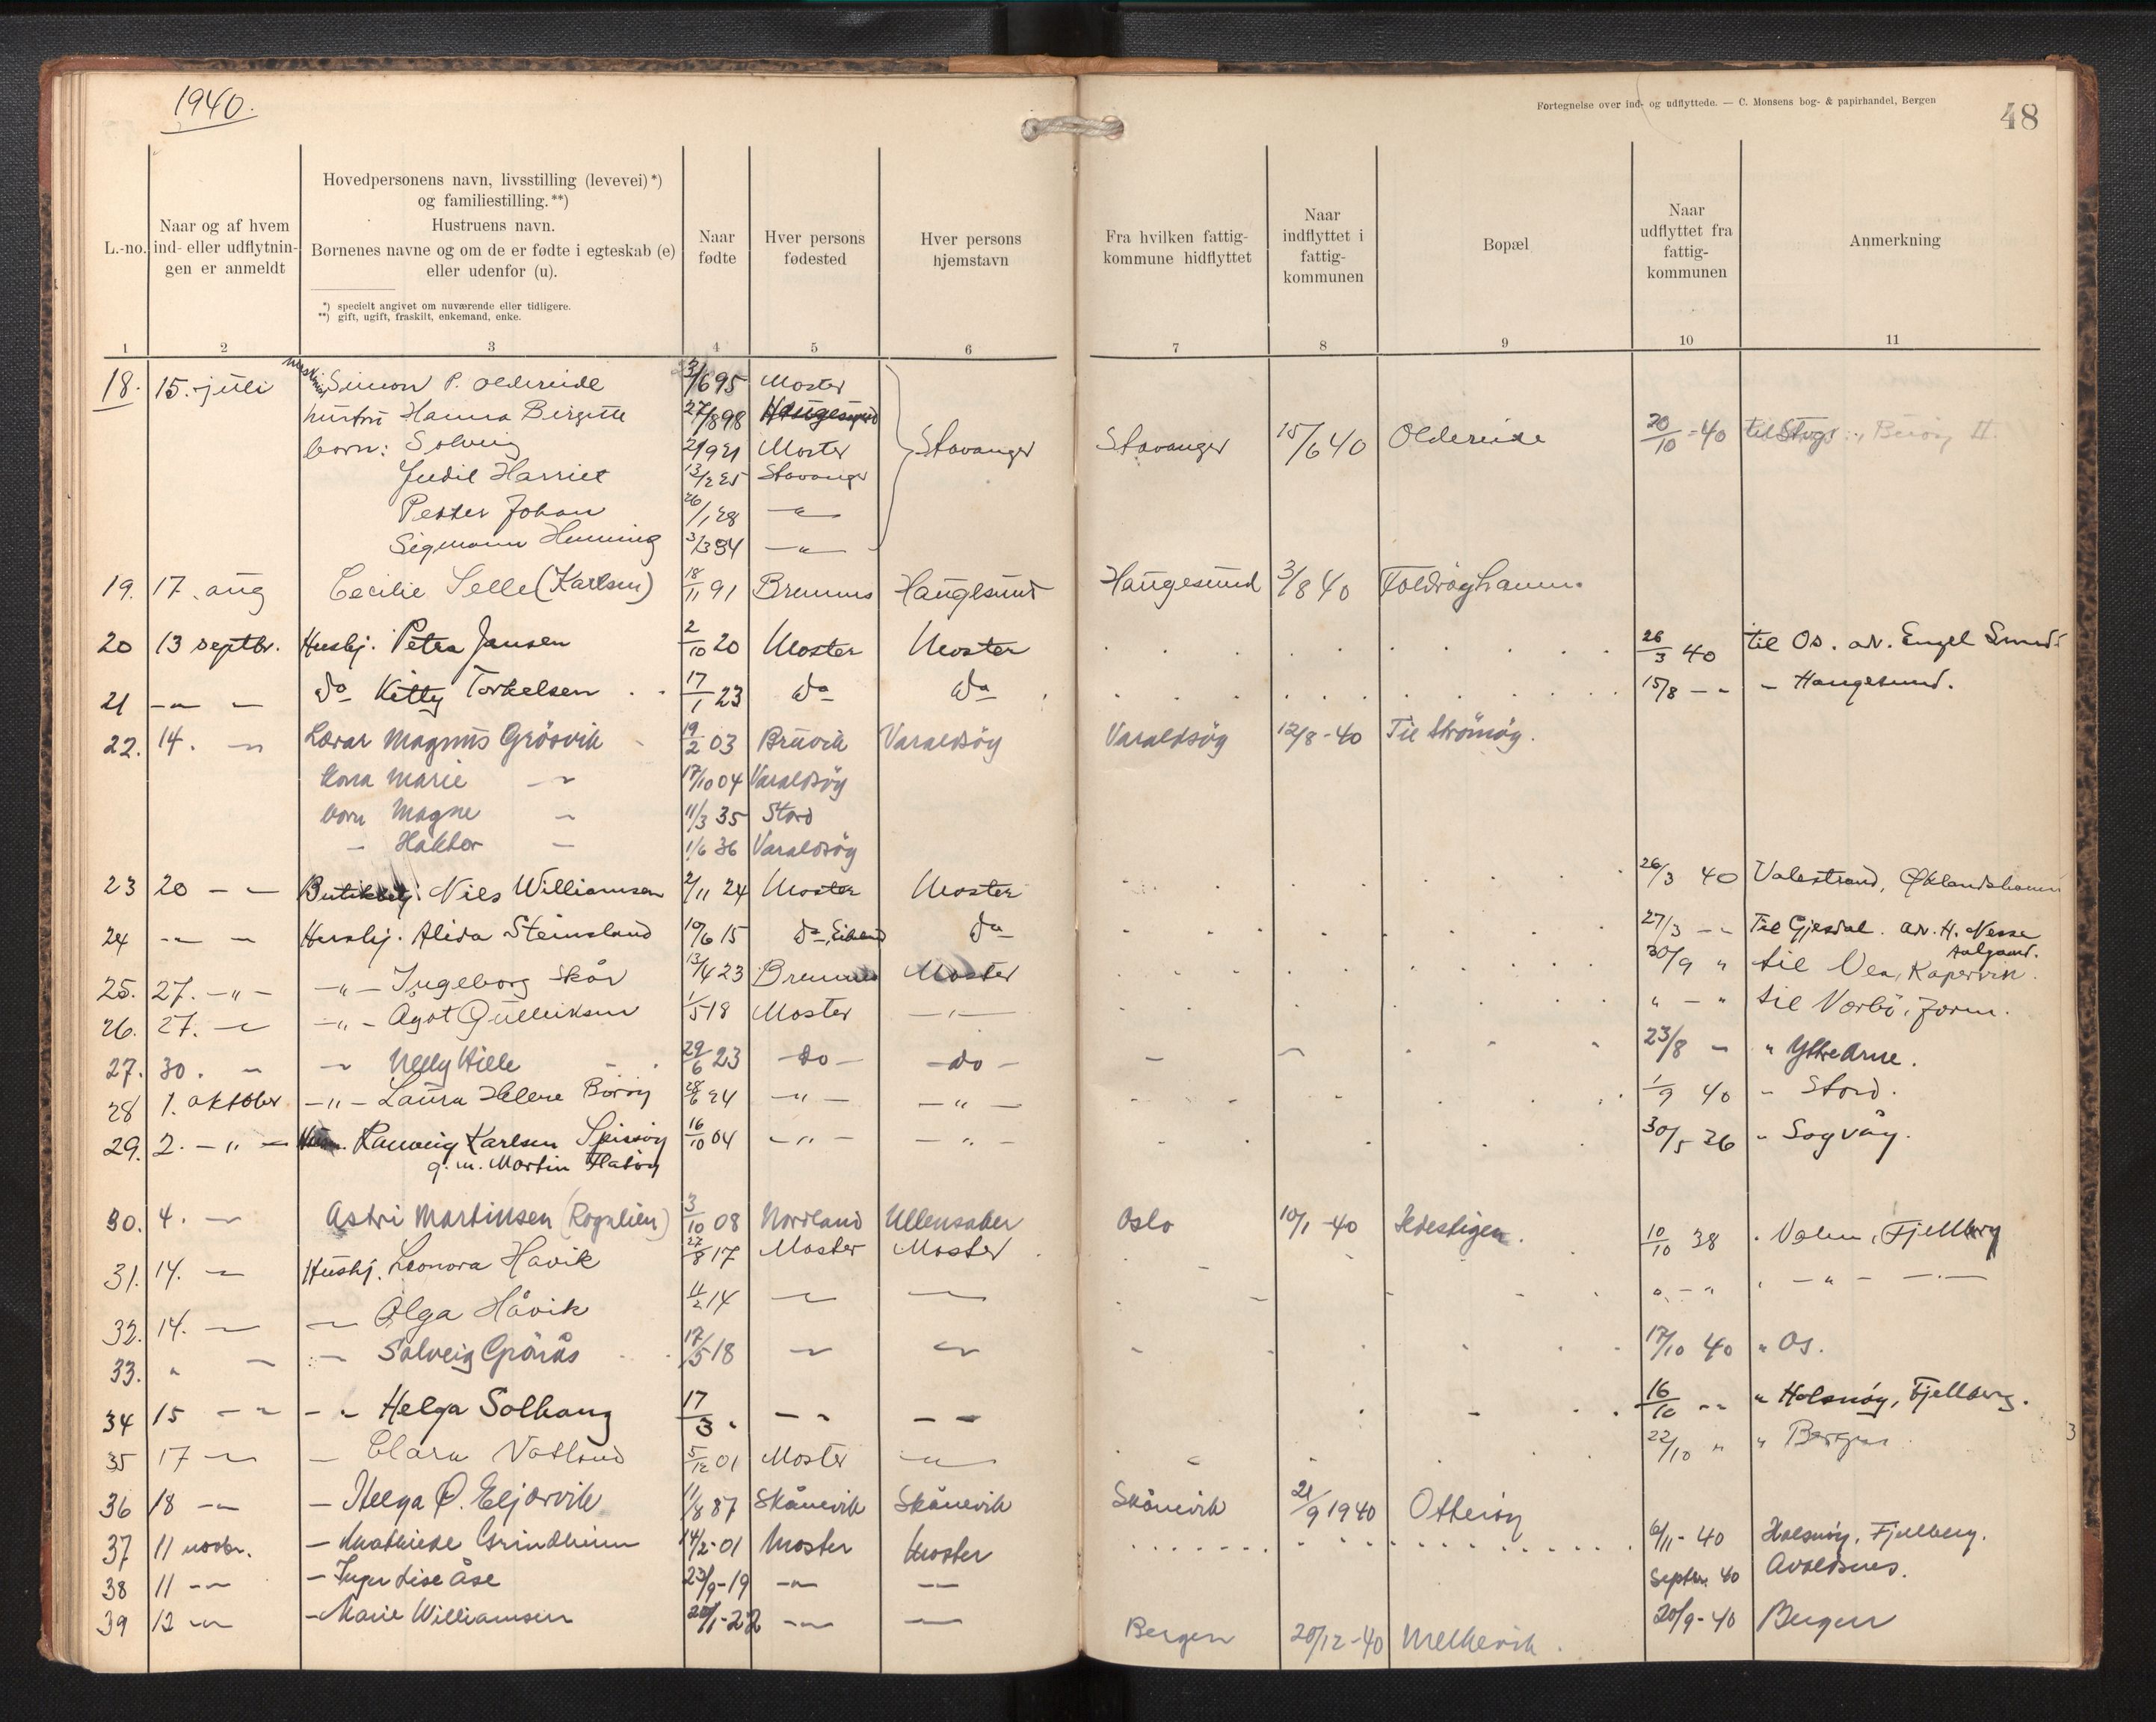 1940.
Fortegnelse over ind- og udflyttede. — C. Monsens bog- & papirhandel, Bergen
48
L.-no.
Naar og af hvem ind- eller udflytnin-gen er anmeldt
Hovedpersonens navn, livsstilling (levevei)*) og familiestilling.**)
Hustruens navn.
Børnenes navne og om de er fødte i egteskab (e) eller udenfor (u).
*) specielt angivet om nuværende eller tidligere.
**) gift, ugift, fraskilt, enkemand, enke.
Naar fødte
Hver persons fødested
Hver persons hjemstavn
Fra hvilken fattig-kommune hidflyttet
Naar indflyttet i fattig-kommunen
Bopæl
Naar udflyttet fra fattig-kommunen
Anmerkning
1 2 3 4 5 6 7 8 9 10 11
18. 15. juli Simon P. Oldereide 3/6 95 Moster
hustru Hanna Birgitte 27/8 98 Haugesund
born: Solveig 2/9 21 Moster Stavanger Stavanger 15/6 40 Oldereide 20/10-40
Judit Harriet 13/2 25 Stavanger
Petter Johan 26/1 28 — " —
Sigmann Henning 3/3 34 — " —
19. 17. aug Cecilie Selle (Karlsen) 18/11 91 Bremnes Haugesund Haugesund 3/8 40 Foldröyhamn.
20 13 septbr. Hushj. Petra Jansen 2/10 20 Moster Moster 26/3 40 til Os. adr. Engel Smedt
21 — " — do Kitty Torkelsen 17/1 23 do do 15/8 — " - Haugesund.
22. 14. — " Lærar Magnus Grösvik 19/2 03 Bruvik Varaldsöy Varaldsöy 12/8-40 Til Strömöy.
kona Marie — " 17/10 04 Varaldsöy
born Magne — " 11/3 35 Stord
— Haktor — 1/6 36 Varaldsöy
23 20 — " Butikbetj. Nils Williamsen 2/11 24 Moster Moster 26/3 40 Valestrand, Øklandshamn
24 — " — Hushj. Alida Steinsland 10/6 15 do, Eiland do 27/3 — " Til Gjesdal. adr. H. Nesse
Aalgaard.
25. 27. — " — — " — Ingeborg Skår 13/4 23 Bremnes Moster 30/9 " til Vea, Kopervik.
26. 27. — " — " — Agot Gulliksen 1/5 18 Moster — " — " — " til Nærbö, Jæren.
27. 30. — " — " Nelly Hille 29/6 23 — do — — do — 23/8 — " Ytre Arne.
28 1. oktober — " — Laura Helene Böröy 28/6 24 — " — — " — 1/9 40 - Stord.
29. 2. — " — Rannveig Karlsen Spissöy 16/10 04 — " — — " — 30/5 36 - Sagvåg.
g. m. Martin Flatöy
30. 4. — " Astri Martinsen (Rognlien) 3/10 08 Nordland Ullensaker Oslo 10/1-40 Hestigen.
31. 14. — " Hushj. Leonora Håvik 27/8 17 Moster Moster 10/10 38 . Valen, Fjellberg
32. 14. — " — " Olga Håvik 11/2 14 — " — " " — " — " —
33. " — " — " Solveig Grönås 17/5 18 — " — " 17/10 40 " Os.
34 15 — " — " Helga Solhaug 17/3 " — " — " 16/10 — " " Halsnöy, Fjellberg.
35 17 — " — Clara Vatland 5/12 01 Moster — " 22/10 " " Bergen
36 18 — " — Helga Ø. Eljarvik 11/8 87 Skånevik Skånevik Skånevik 21/9 1940 Otteröy
37 11 novbr. — Mathilde Grindheim 14/2-01 Moster Moster 6/11-40 Halsnöy, Fjellberg.
38 11 — " — Inger Lise Åse 23/9-19 — " — " Septbr. 40 Avaldsnes.
39 12 — " — Marie Williamsen 20/1-22 — " — " 20/9-40 Bergen
Bergen 20/12-40 Melkevik.